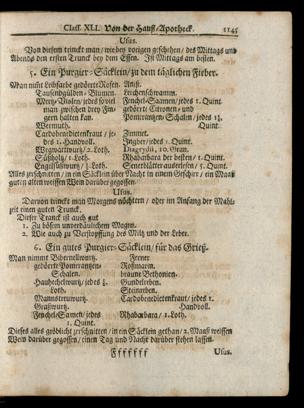 Class. XLI. Von der Hauß-Apotheck. 1145
Usus.
Von diesem trinckt man / wie bey vorigen geschehen / des Mittags und
Abends den ersten Trunck bey dem Essen. Ist Mittags am besten.
5. Ein Purgier-Säcklein / zu dem täglichen Fieber.
Man nimt Leibfarbe gedörrte Rosen.
Tausendgülden-Blumen.
Mertz-Violen / jedes so viel
man zwischen drey Fin-
gern halten kan.
Wermuth.
Cardobenedictenkraut / je-
des 1. Handvoll.
Wegwartwurtz / 2. Loth.
Süßholtz / 1. Loth.
Engelsüßwurtz / Loth.
Aniß.
Lerchenschwamm.
Fenchel-Saamen / jedes 1. Quint.
gedörrte Citronen- und
Pomerantzen-Schalen / jedes
Quint.
Zimmet.
Ingber / jedes 1. Quint.
Diagrydii, 10. Gran.
Rhabarbara der besten / 1. Quint.
Senetblätter auserlesen / 5. Quint.
Alles zerschnitten / in ein Säcklein über Nacht in einem Geschirr / ein Maaß
guten alten weissen Wein darüber gegossen.
Usus.
Darvon trinckt man Morgens nüchtern / oder im Anfang der Mahl-
zeit einen guten Trunck.
Dieser Tranck ist auch gut
1. Zu bösem unverdäulichem Magen.
2. Wie auch zu Verstopffung des Miltz und der Leber.
6. Ein gutes Purgier-Säcklein / für das Grieß.
Man nimmt Bibernellwurtz.
gedörrte Pomerantzen-
Schalen.
Hauhechelwurtz / jedes
Loth.
Mannstreuwurtz.
Graßwurtz.
Fenchel-Samen / jedes
1. Quint.
Ferner
Roßmarin.
braune Bethonien.
Gundelreben.
Steinreben.
Cardobenedictenkraut / jedes 1.
Handvoll.
Rhabarbara / 1. Loth.
Dieses alles gröblicht zerschnitten / in ein Säcklein gethan / 2. Maaß weissen
Wein darüber gegossen / einen Tag und Nacht darüber stehen lassen.
Fffffff Usus.